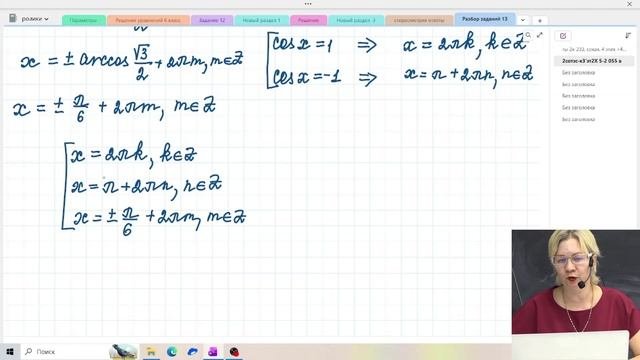 ролики
Параметры
Решение уравнений 6 класс
Задание 12
Новый раздел 1
Решение
Новый раздел 3
стереометрия ответы
Разбор заданий 13
x = ± arccos √3/2 + 2πm, m∈Z
cos x = 1 ⇒ x = 2πk, k∈Z
cos x = -1 ⇒ x = π + 2πn, n∈Z
x = ± π/6 + 2πm, m∈Z
x = 2πk, k∈Z
x = π + 2πn, n∈Z
x = ± π/6 + 2πm, m∈Z
Без заголовка
Без заголовка
Без заголовка
Без заголовка
Без заголовка
Поиск